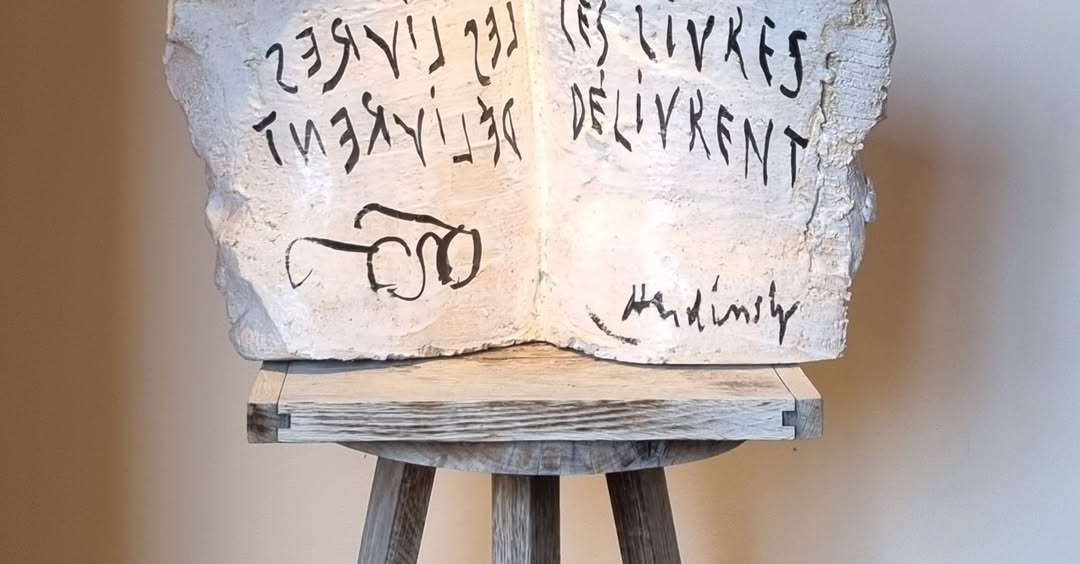 LES LIVRES
DÉLIVRENT
LES LIVRES
DÉLIVRENT